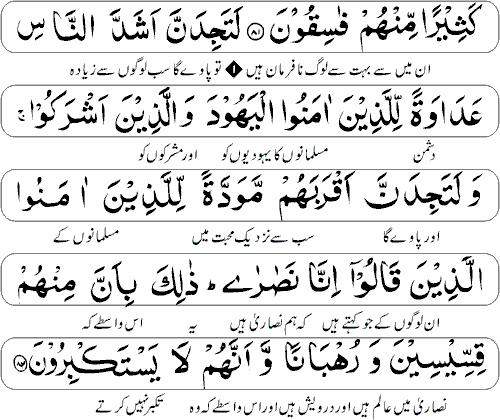 كَثِيْرًا مِّنْهُمْ فٰسِقُوْنَ ﴿۸۱﴾ لَتَجِدَنَّ اَشَدَّ النَّاسِ
ان میں سے بہت سے لوگ نافرمان ہیں تو پاوے گا سب لوگوں سے زیادہ
عَدَاوَةً لِّلَّذِيْنَ اٰمَنُوا الْيَهُوْدَ وَالَّذِيْنَ اَشْرَكُوْا ۚ
دشمن مسلمانوں کا یہودیوں کو اور مشرکوں کو
وَلَتَجِدَنَّ اَقْرَبَهُمْ مَّوَدَّةً لِّلَّذِيْنَ اٰمَنُوا
اور پاوے گا سب سے نزدیک محبت میں مسلمانوں کے
الَّذِيْنَ قَالُوْٓا اِنَّا نَصٰرٰى ؕ ذٰلِكَ بِاَنَّ مِنْهُمْ
ان لوگوں کے جو کہتے ہیں کہ ہم نصاریٰ ہیں یہ اس واسطے کہ
قِسِّيْسِيْنَ وَ رُهْبَانًا وَّ اَنَّهُمْ لَا يَسْتَكْبِرُوْنَ ﴿۸۲﴾
نصاریٰ میں عالم ہیں اور درویش ہیں اور اس واسطے کہ وہ تکبر نہیں کرتے